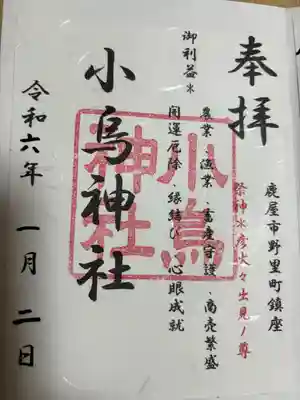 奉拝
鹿屋市野里町鎮座
祭神*彦火々出見ノ尊
御利益*
農業、漁業、畜産守護、商売繁盛
開運厄除、縁結び、心眼成就
小烏神社
小烏
神社
令和六年 一月 二日